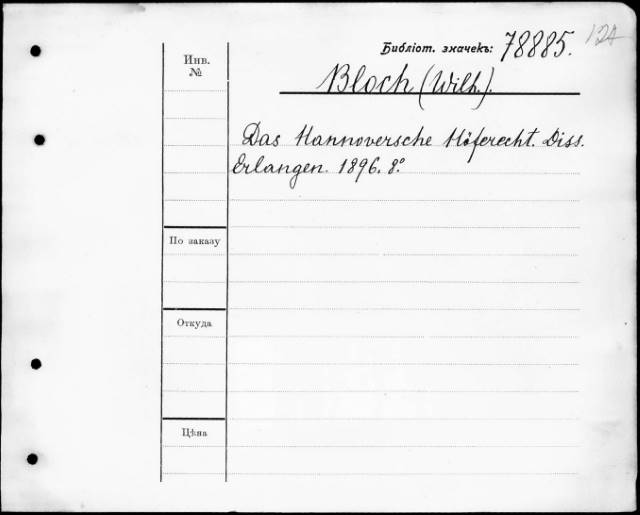 Библіот. значекъ: 78885. 124
Инв.
№
Bloch (Wilh.).
Das Hannoversche Höferecht. Diss.
Erlangen. 1896. 8°.
По заказу
Откуда
Цѣна